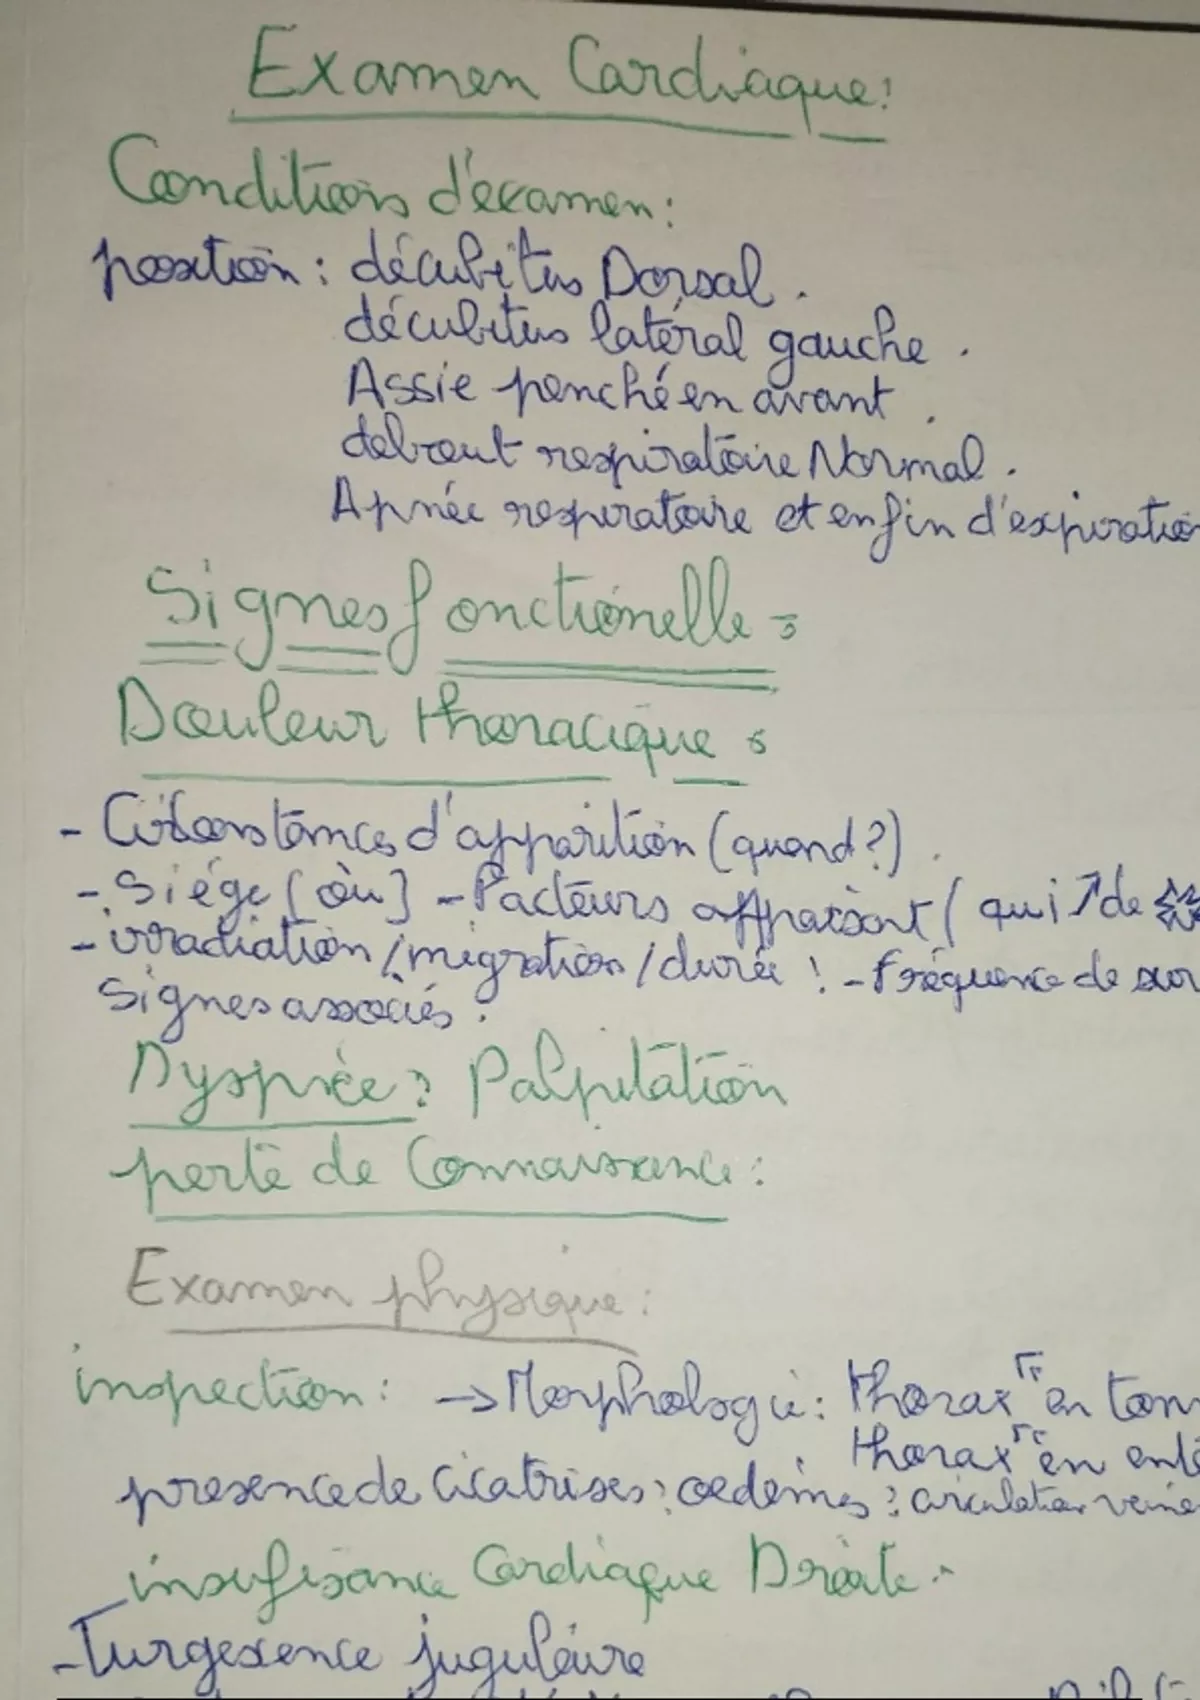 Examen Cardiaque:
Conditions d'examen:
position : décubitus Dorsal.
décubitus latéral gauche.
Assie penché en avant.
debout respiratoire Normal.
Apnée respiratoire et enfin d'expiration
Signes fonctionelle :
Douleur thoracique :
- Circonstances d'apparition (quand?).
- Siége [où] - Facteurs appaisant ( qui ↗ de
- irradiation / migration / durée ! - fréquence de sur
Signes associés :
Dyspnée : Palpitation
perte de Connaissance :
Examen physique :
inspection : → Morphologie : thorax " en ton
thorax " en ent
presence de Cicatrises : oedèmes : circulation veine
insufisance Cardiaque Droite.
- Turgesence jugulaire